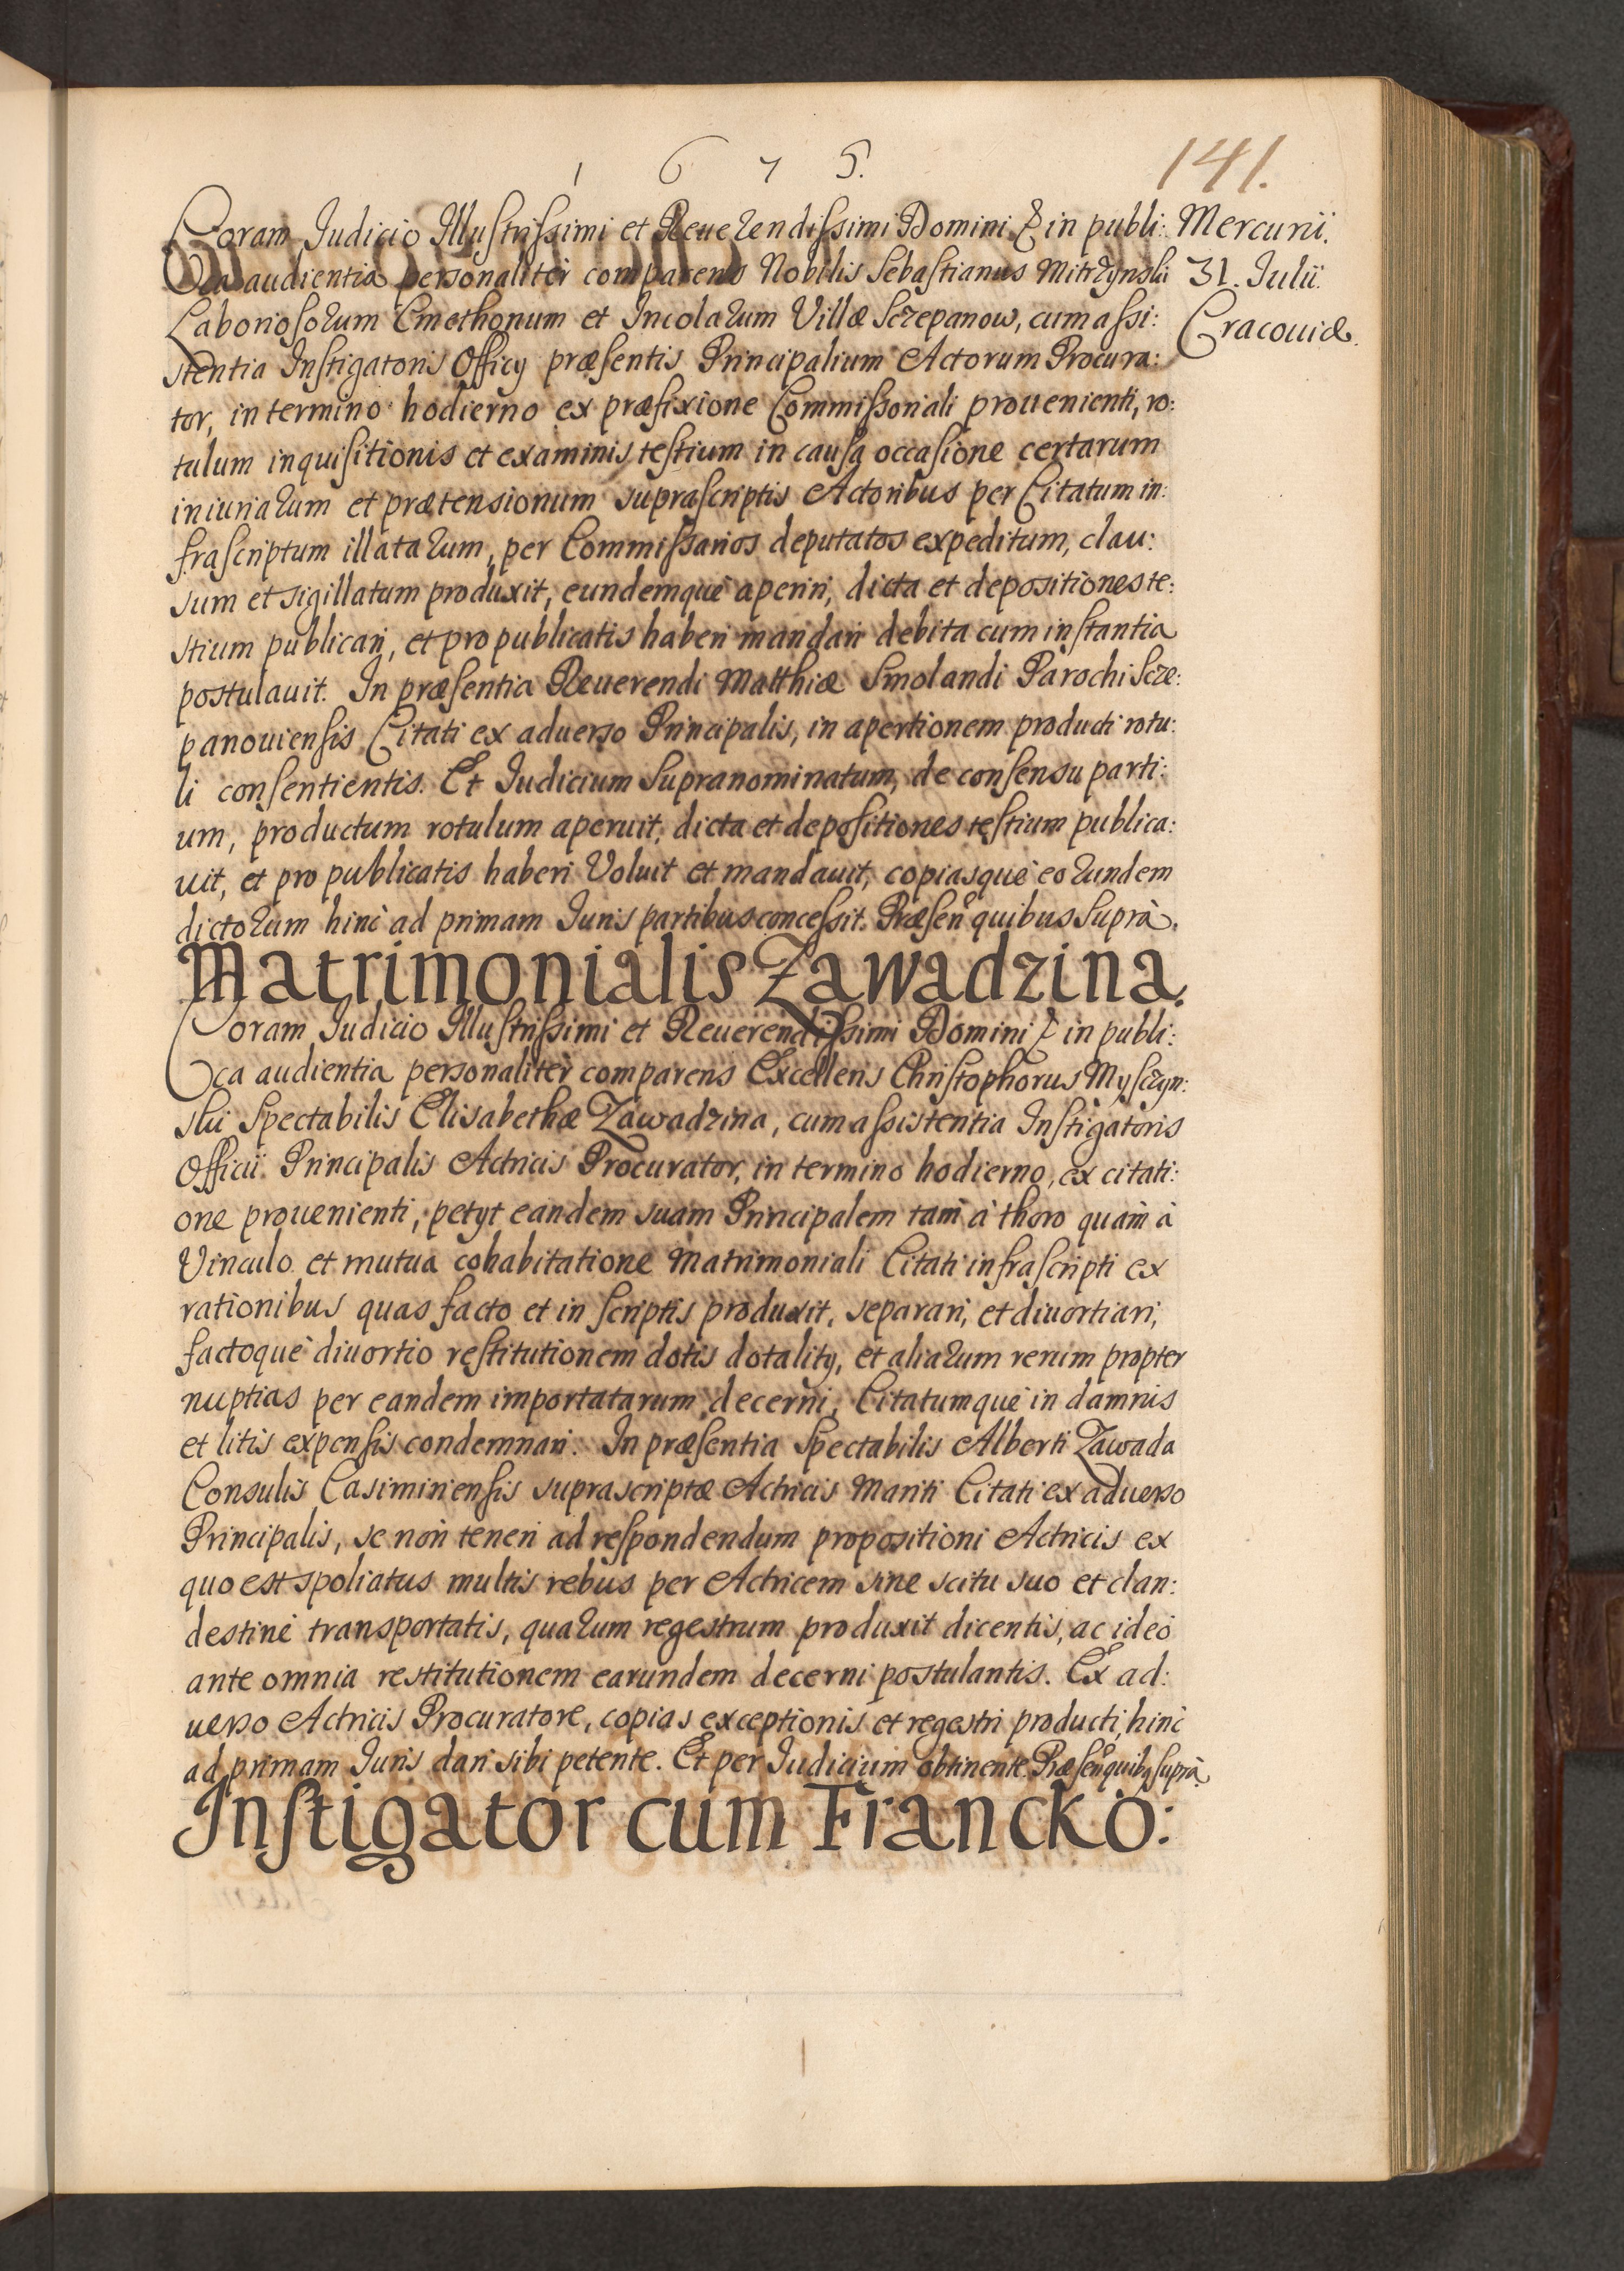 1675.
141.
Coram Judicio Illustrissimi et Reuerendissimi Domini & in publi:
Mercurii.
ca audientia personaliter comparens Nobilis Sebastianus Mitrzynski
31. Julii.
Laboriosorum Cmethonum et Incolarum Villæ Sczepanow, cum assi:
Cracouiæ.
stentia Instigatoris Officy præsentis Principalium Actorum Procura:
tor, in termino hodierno ex præfixione Commissoriali prouenienti, ro:
tulum inquisitionis et examinis testium in causa occasione certarum
iniuriarum et prætensionum suprascriptis Actoribus per Citatum in:
frascriptum illatarum, per Commissarios deputatos expeditum, clau:
sum et sigillatum produxit, eundemque aperiri, dicta et depositiones te:
stium publicari, et pro publicatis haberi mandari debita cum instantia
postulauit. In præsentia Reuerendi Matthiæ Smolandi Parochi Scze:
panouiensis Citati ex aduerso Principalis, in apertionem producti rotu:
li consentientis. Et Judicium Supranominatum, de consensu parti:
um, productum rotulum aperuit, dicta et depositiones testium publica:
uit, et pro publicatis haberi Voluit et mandauit, copiasque eorundem
dictorum hinc ad primam Juris partibus concessit. Præsen. quibus Suprà.
Matrimonialis Zawadzina.
Coram Judicio Illustrissimi et Reuerendissimi Domini & in publi:
ca audientia personaliter comparens Excellens Christophorus Mysczyn:
ski Spectabilis Elisabethæ Zawadzina, cum assistentia Instigatoris
Officii Principalis Actricis Procurator, in termino hodierno, ex citati:
one prouenienti, petyt eandem suam Principalem tam à thoro quam à
Vinculo et mutua cohabitatione Matrimoniali Citati infrascripti ex
rationibus quas facto et in scriptis produxit, separari, et diuortiari,
factoque diuortio restitutionem dotis dotality, et aliarum rerum propter
nuptias per eandem importatarum decerni, Citatumque in damnis
et litis expensis condemnari. In præsentia Spectabilis Alberti Zawada
Consulis Casimiriensis suprascriptæ Actricis Mariti Citati ex aduerso
Principalis, se non teneri ad respondendum propositioni Actricis ex
quo est spoliatus multis rebus per Actricem sine scitu suo et clan:
destine transportatis, quarum regestrum produxit dicentis, ac ideò
ante omnia restitutionem earundem decerni postulantis. Ex ad:
uerso Actricis Procuratore, copias exceptionis et regestri producti, hinc
ad primam Juris dari sibi petente. Et per Judicium obtinente. Præsen. quibus suprà.
Instigator cum Francko: